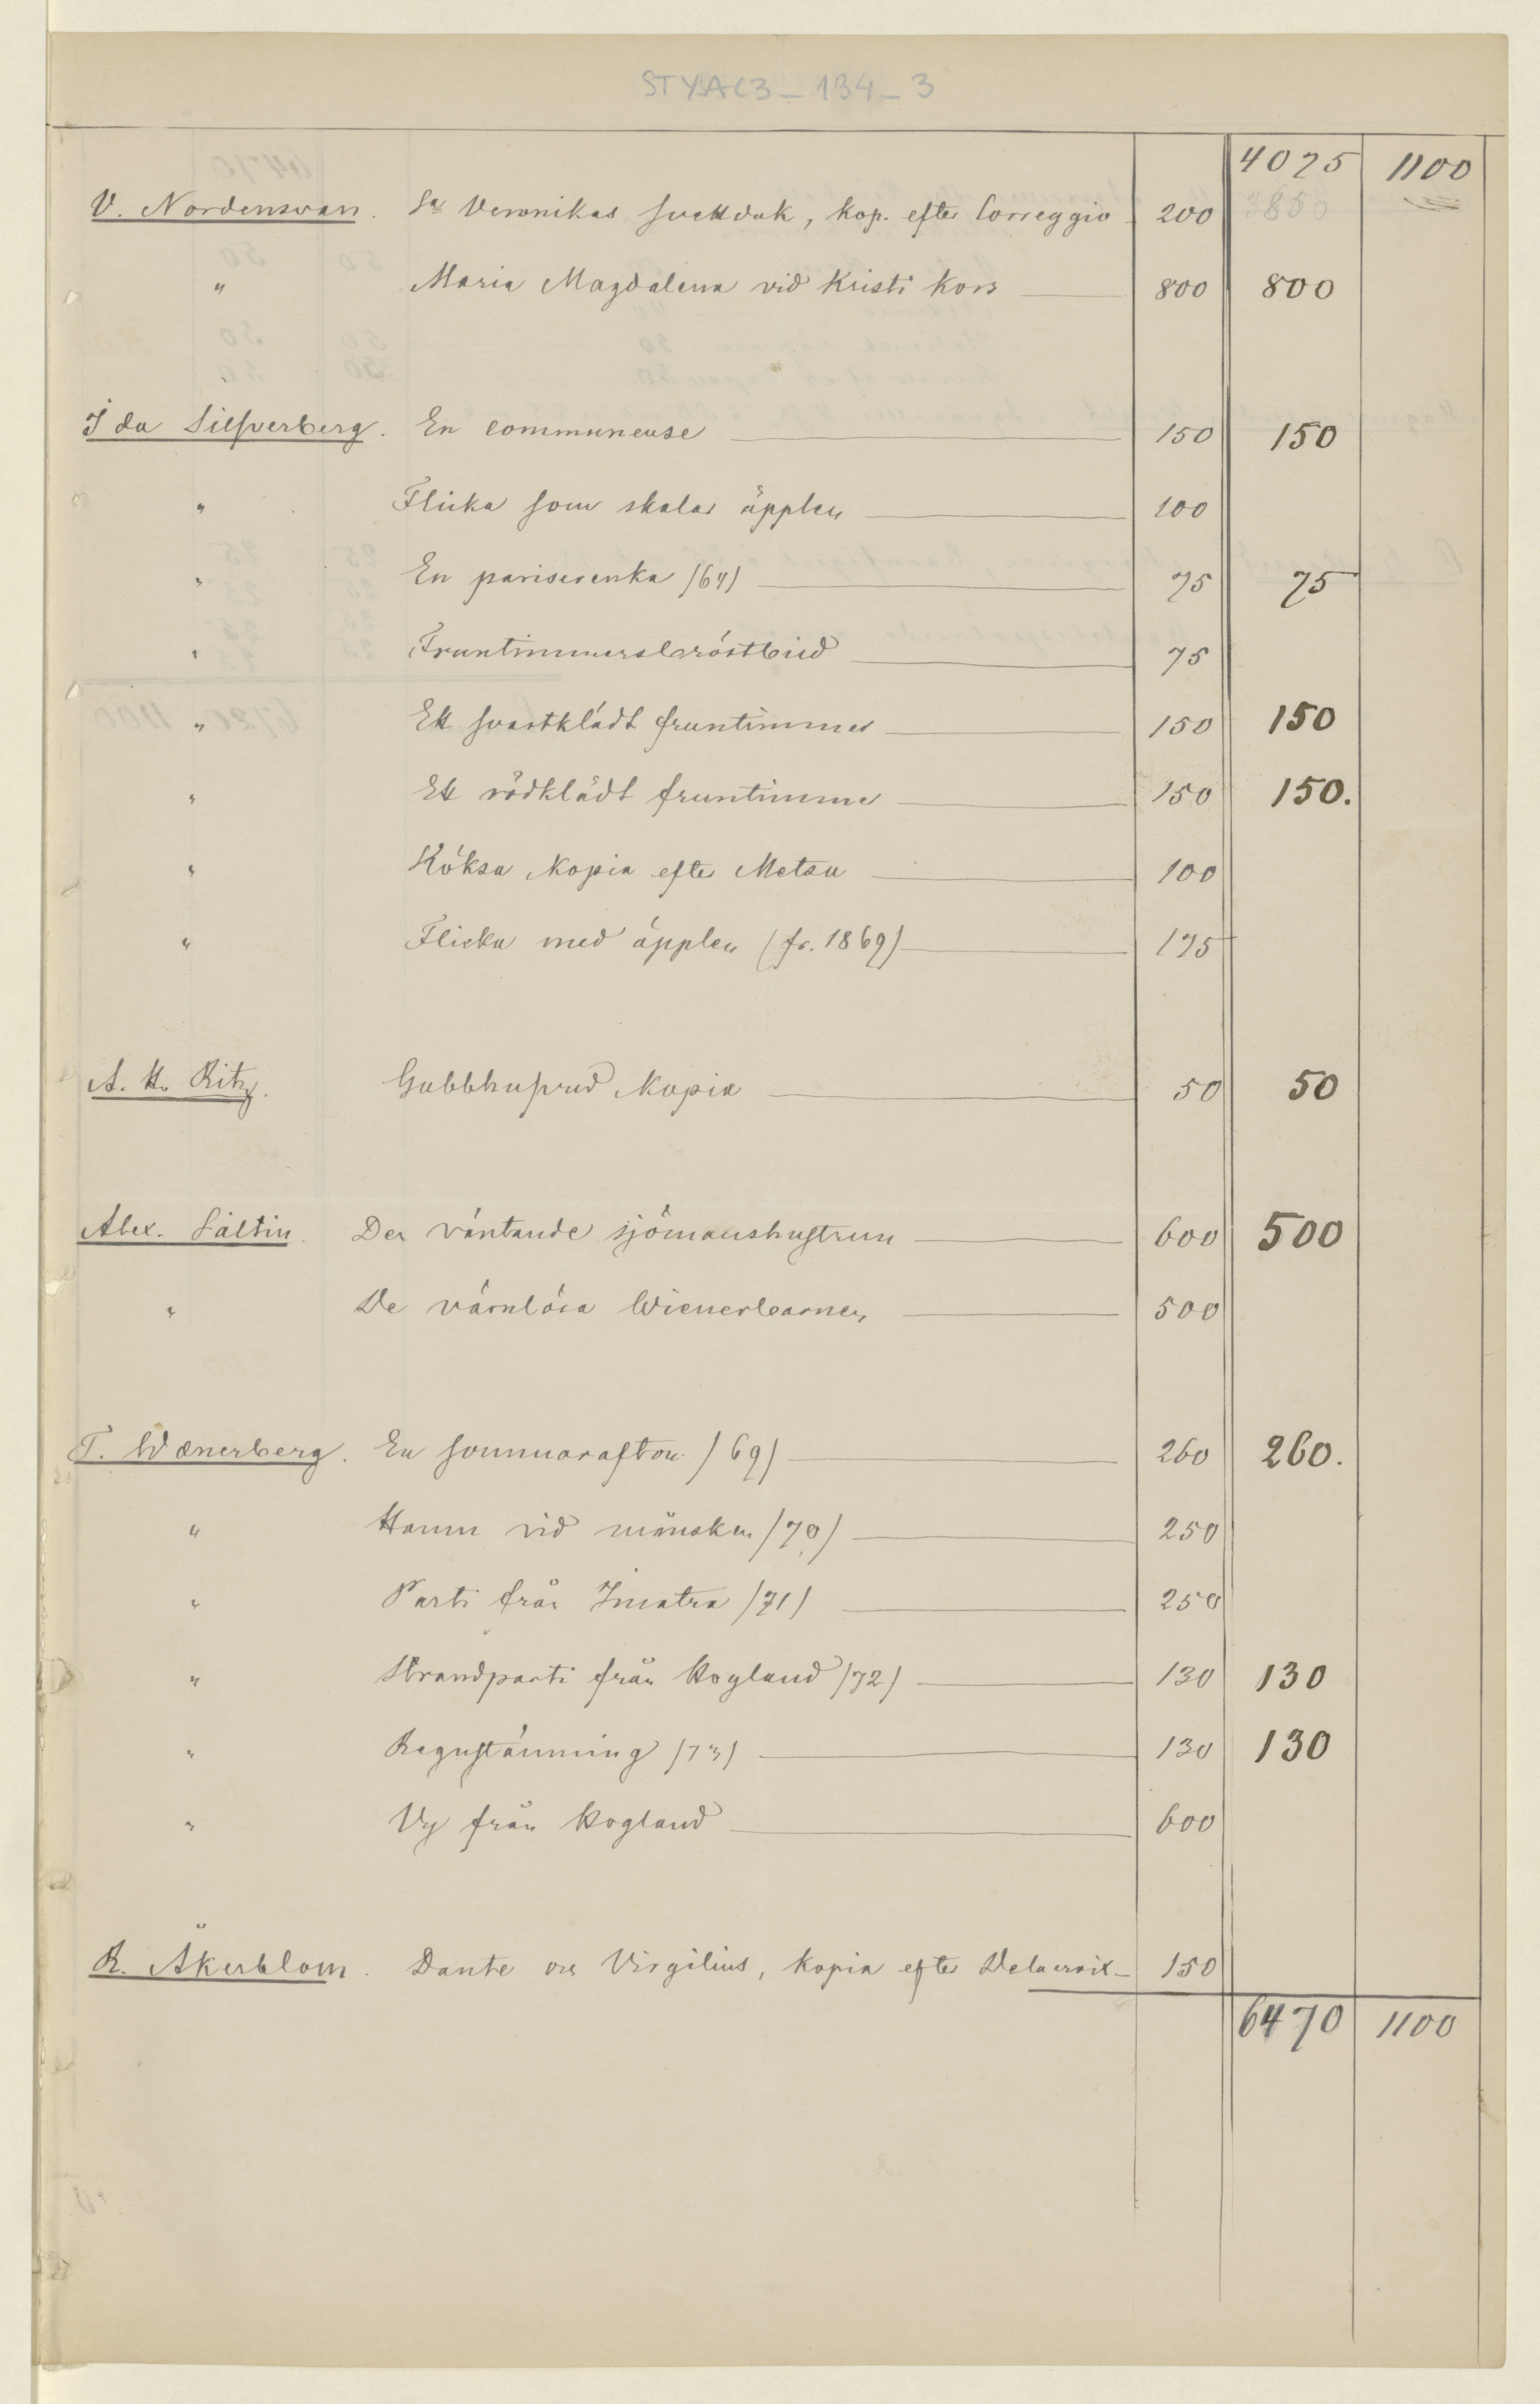 STYAC3-134-3
4075 1100
V. Nordensvan. Sa Veronikas svettduk, kop. efter Correggio 200 3850
" Maria Magdalena vid Kristi kors 800 800
Ida Silfverberg. En communeuse 150 150
" Flicka som skalar äpplen 100
" En pariserenka (64) 75 75
" Fruntimmersbröstbild 75
" Ett svartklädt fruntimmer 150 150
" Ett rödklädt fruntimmer 150 150.
" Köksa Kopia efter Metsu 100
" Flicka med äpplen (fr. 1869) 175
A. H. Ritz. Gubbhufvud Kopia 50 50
Alex. Saltin. Den väntande sjömanshustrun 600 500
" De värnlösa Wienerbarnen 500
T. Wænerberg. En sommarafton (69) 260 260.
" Hamn vid månsken (70) 250
" Parti från Imatra (71) 250
" Strandparti från Hogland (72) 130 130
" Regnstämning (73) 130 130
" Vy från Hogland 600
R. Åkerblom. Dante och Virgilius, kopia efter Delacroix 150
6470 1100